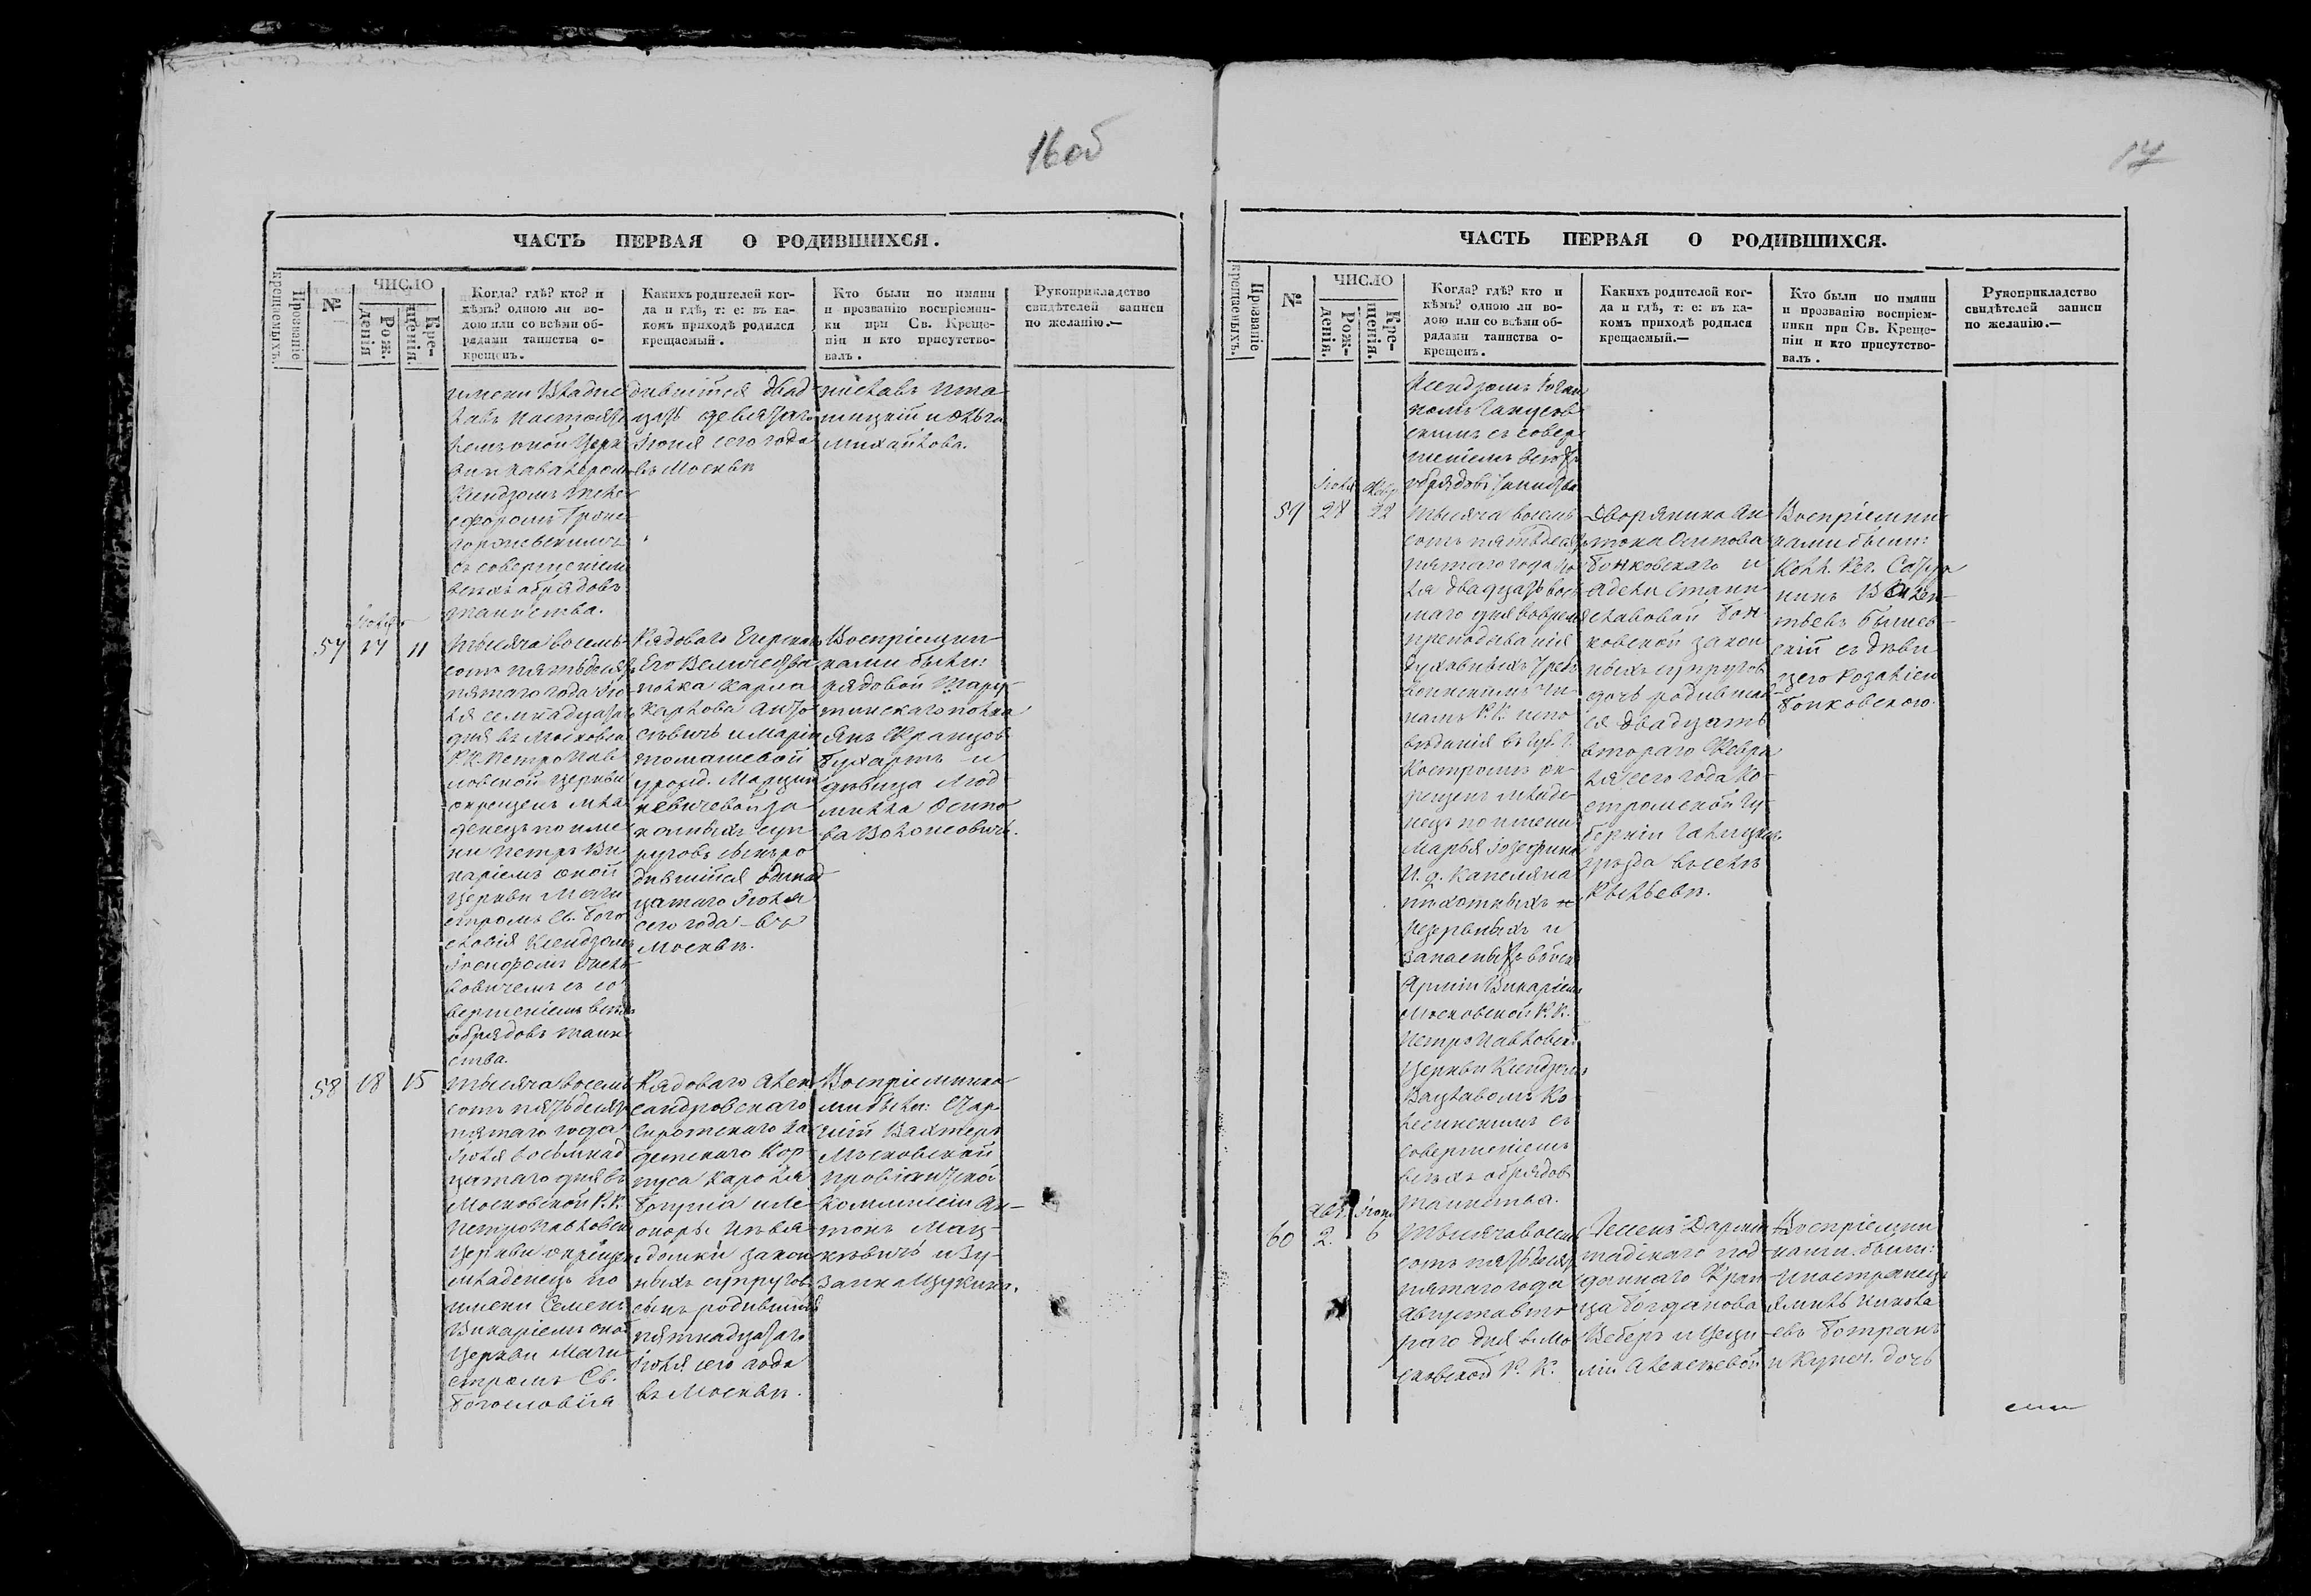 16 об
ЧАСТЬ ПЕРВАЯ О РОДИВШИХСЯ.
Прозваніе крещаемыхъ.
№
ЧИСЛО
Рож-
денія
Кре-
щенія.
Когда? гдѣ? кто? и
кѣмъ? одною ли во-
дою или со всѣми об-
рядами таинства о-
крещенъ.
Какихъ родителей ког-
да и гдѣ, т: е: въ ка-
комъ приходѣ родился
крещаемый.
Кто были по имени
и прозванію воспріемни-
ки при Св. Креще-
ніи и кто присутство-
валъ.
Рукоприкладство
свидѣтелей записи
по желанію.—
имени Владис
лавъ Настояте
лемъ оной Церк
Ксендзомъ
съ совершеніемъ
всехъ обрядовъ
таинства.
дившійся двад
цать девятаго
Іюня сего года
въ Москвѣ
Михайлова.
57 17 11
Тысяча восемь
сотъ пятьдесятъ
пятаго года Ію
ля семнадцатаго
дня въ Московско
Р. К. Петро Пав
ловской Церкви
окрещенъ мла
денецъ по име
ни Петръ Ви
каріемъ оной
Церкви Маги
стромъ Св. Бого
словія Ксендзомъ
Іосифомъ
съ со
вершеніемъ всехъ
обрядовъ таин
ства.
Рядоваго Егерскаго
Его Величества
полка Карла
Карлова
и Маріи
Томашевой
урожд.
за
конныхъ суп
руговъ сынъ ро
дившійся одинад
цатаго Іюля
сего года въ
Москвѣ.
Воспріемни
ками были:
рядовой Тару
тинскаго полка
Янъ Францовъ
и
дѣвица Люд
мила Осипо
ва
58 18 15
Тысяча восемь
сотъ пятьдесятъ
пятаго года
Іюля восемнад
цатаго дня въ
Московской Р. К.
Петропавловской
Церкви окрещенъ
младенецъ по
имени Семенъ
Викаріемъ оной
Церкви Маги
стромъ Св.
Богословія
Рядоваго Алек
сандровскаго
Сиротскаго Ка
детскаго Кор
пуса Кароля
и Ле
оноры
закон
ныхъ супруговъ
сынъ родившійся
пятнадцатаго
Іюля сего года
въ Москвѣ.
Воспріемника
ми были: Стар
шій Вахтеръ
Московской
Провіантской
Коммисіи Ан-
тонъ Мац-
кѣвичъ и Зу-
занна
17
ЧАСТЬ ПЕРВАЯ О РОДИВШИХСЯ.
Прозваніе крещаемыхъ.
№
ЧИСЛО
Рож-
денія.
Кре-
щенія.
Когда? гдѣ? кто и
кѣмъ? одною ли во-
дою или со всѣми об-
рядами таинства о-
крещенъ.
Какихъ родителей ког-
да и гдѣ, т: е: въ ка-
комъ приходѣ родился
крещаемый.—
Кто были по имени
и прозванію воспріем-
ники при Св. Креще-
ніи и кто присутство-
валъ.
Рукоприкладство
свидѣтелей записи
по желанію.—
Ксендзомъ
съ совер
шеніемъ всехъ
обрядовъ таинства
Іюля Февр.
59 28 22
Тысяча восемь
сотъ пятьдесятъ
пятаго года Ію
ля двадцать вось
маго дня во время
преподаванія
духовныхъ требъ
воинскимъ чи
намъ Р. К. испо
вѣданія въ губ. г.
Костромѣ ок
рещенъ младе
нецъ по имени
Марья Іозефина
И. д. Капеляна
пѣхотныхъ
резервныхъ и
запасныхъ войск
Арміи Викаріемъ
Московской Р. К.
Петро Павловск.
Церкви Ксендзомъ
Вацлавомъ
съ
совершеніемъ
всехъ обрядовъ
таинства.
Дворянина Ан
тона Осипова
Бонковскаго и
Адели Стани
славовой Бон
ковской закон
ныхъ супруговъ
дочь родивша
ся двадцать
втораго Февра
ля сего года Ко
стромской Гу
берніи Галицка.
уѣзда въ селѣ
Воспріемни
ками были:
Колл. Рег.
съ дѣви
цею Розаліею
Бонковскою.
Авг. Іюн.
60 2. 6
Тысяча восемь
сотъ пятьдесятъ
пятаго года
Августа вто
раго дня въ Мо
сковской Р. К.
Гессенъ Дарми
тадскаго под
даннаго Фран
ца Богданова
Веберъ и Цеци
ліи Алексѣевой
Воспріемни
ками были:
Иностранецъ
Эмиль Никола
евъ
и Купеч. дочь